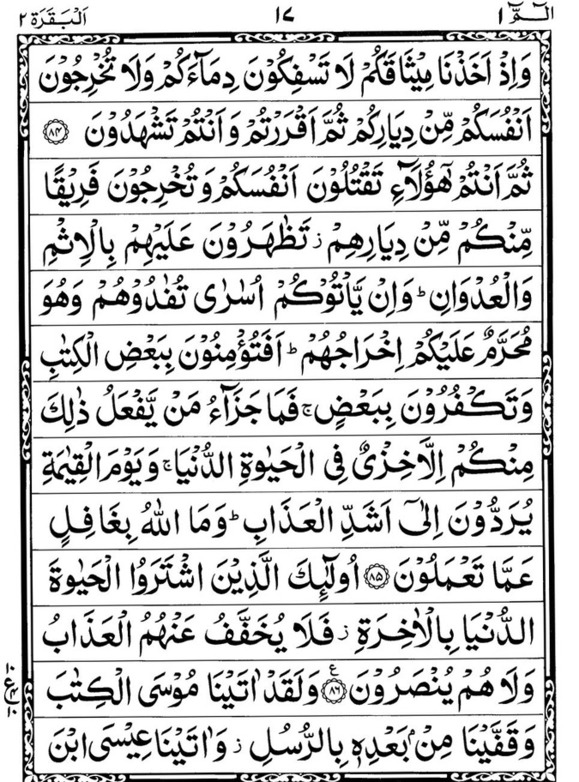 الٓمّٓ ١ ١٧ اَلْبَقَرَة ٢
وَاِذْ اَخَذْنَا مِيْثَاقَكُمْ لَا تَسْفِكُوْنَ دِمَآءَكُمْ وَلَا تُخْرِجُوْنَ
اَنْفُسَكُمْ مِّنْ دِيَارِكُمْ ثُمَّ اَقْرَرْتُمْ وَاَنْتُمْ تَشْهَدُوْنَ ۝٨٤
ثُمَّ اَنْتُمْ هٰٓؤُلَآءِ تَقْتُلُوْنَ اَنْفُسَكُمْ وَتُخْرِجُوْنَ فَرِيْقًا
مِّنْكُمْ مِّنْ دِيَارِهِمْ ز تَظٰهَرُوْنَ عَلَيْهِمْ بِالْاِثْمِ
وَالْعُدْوَانِ ؕ وَاِنْ يَّاْتُوْكُمْ اُسٰرٰى تُفٰدُوْهُمْ وَهُوَ
مُحَرَّمٌ عَلَيْكُمْ اِخْرَاجُهُمْ ؕ اَفَتُؤْمِنُوْنَ بِبَعْضِ الْكِتٰبِ
وَتَكْفُرُوْنَ بِبَعْضٍ ۚ فَمَا جَزَآءُ مَنْ يَّفْعَلُ ذٰلِكَ
مِنْكُمْ اِلَّا خِزْىٌ فِى الْحَيٰوةِ الدُّنْيَا ۚ وَيَوْمَ الْقِيٰمَةِ
يُرَدُّوْنَ اِلٰٓى اَشَدِّ الْعَذَابِ ؕ وَمَا اللّٰهُ بِغَافِلٍ
عَمَّا تَعْمَلُوْنَ ۝٨٥ اُولٰٓئِكَ الَّذِيْنَ اشْتَرَوُا الْحَيٰوةَ
الدُّنْيَا بِالْاٰخِرَةِ ز فَلَا يُخَفَّفُ عَنْهُمُ الْعَذَابُ
وَلَا هُمْ يُنْصَرُوْنَ ۝٨٦ ع وَلَقَدْ اٰتَيْنَا مُوْسَى الْكِتٰبَ
١٠ ع ٤ ١٠
وَقَفَّيْنَا مِنْۢ بَعْدِهٖ بِالرُّسُلِ ز وَاٰتَيْنَا عِيْسَى ابْنَ